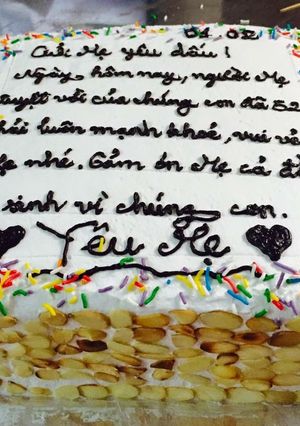 01.02
Gửi Mẹ yêu dấu!
Ngày hôm nay, người Mẹ
tuyệt vời của chúng con đã
phải luôn mạnh khoẻ, vui vẻ
nhé. Cảm ơn Mẹ cả
sinh vì chúng con.
Yêu Mẹ